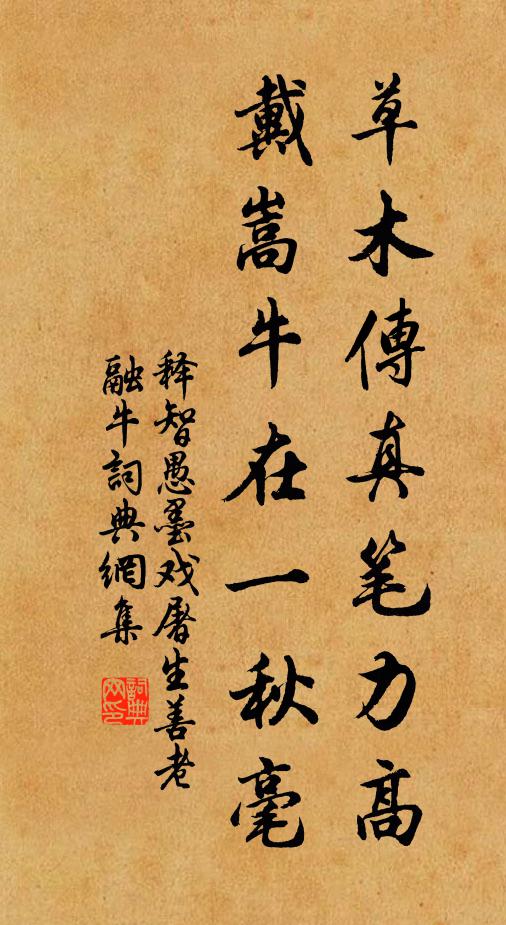 草木傳真笔力高
戴嵩牛在一秋毫
释智愚墨戏屠生善老
融牛詞典網集
詞典
网印